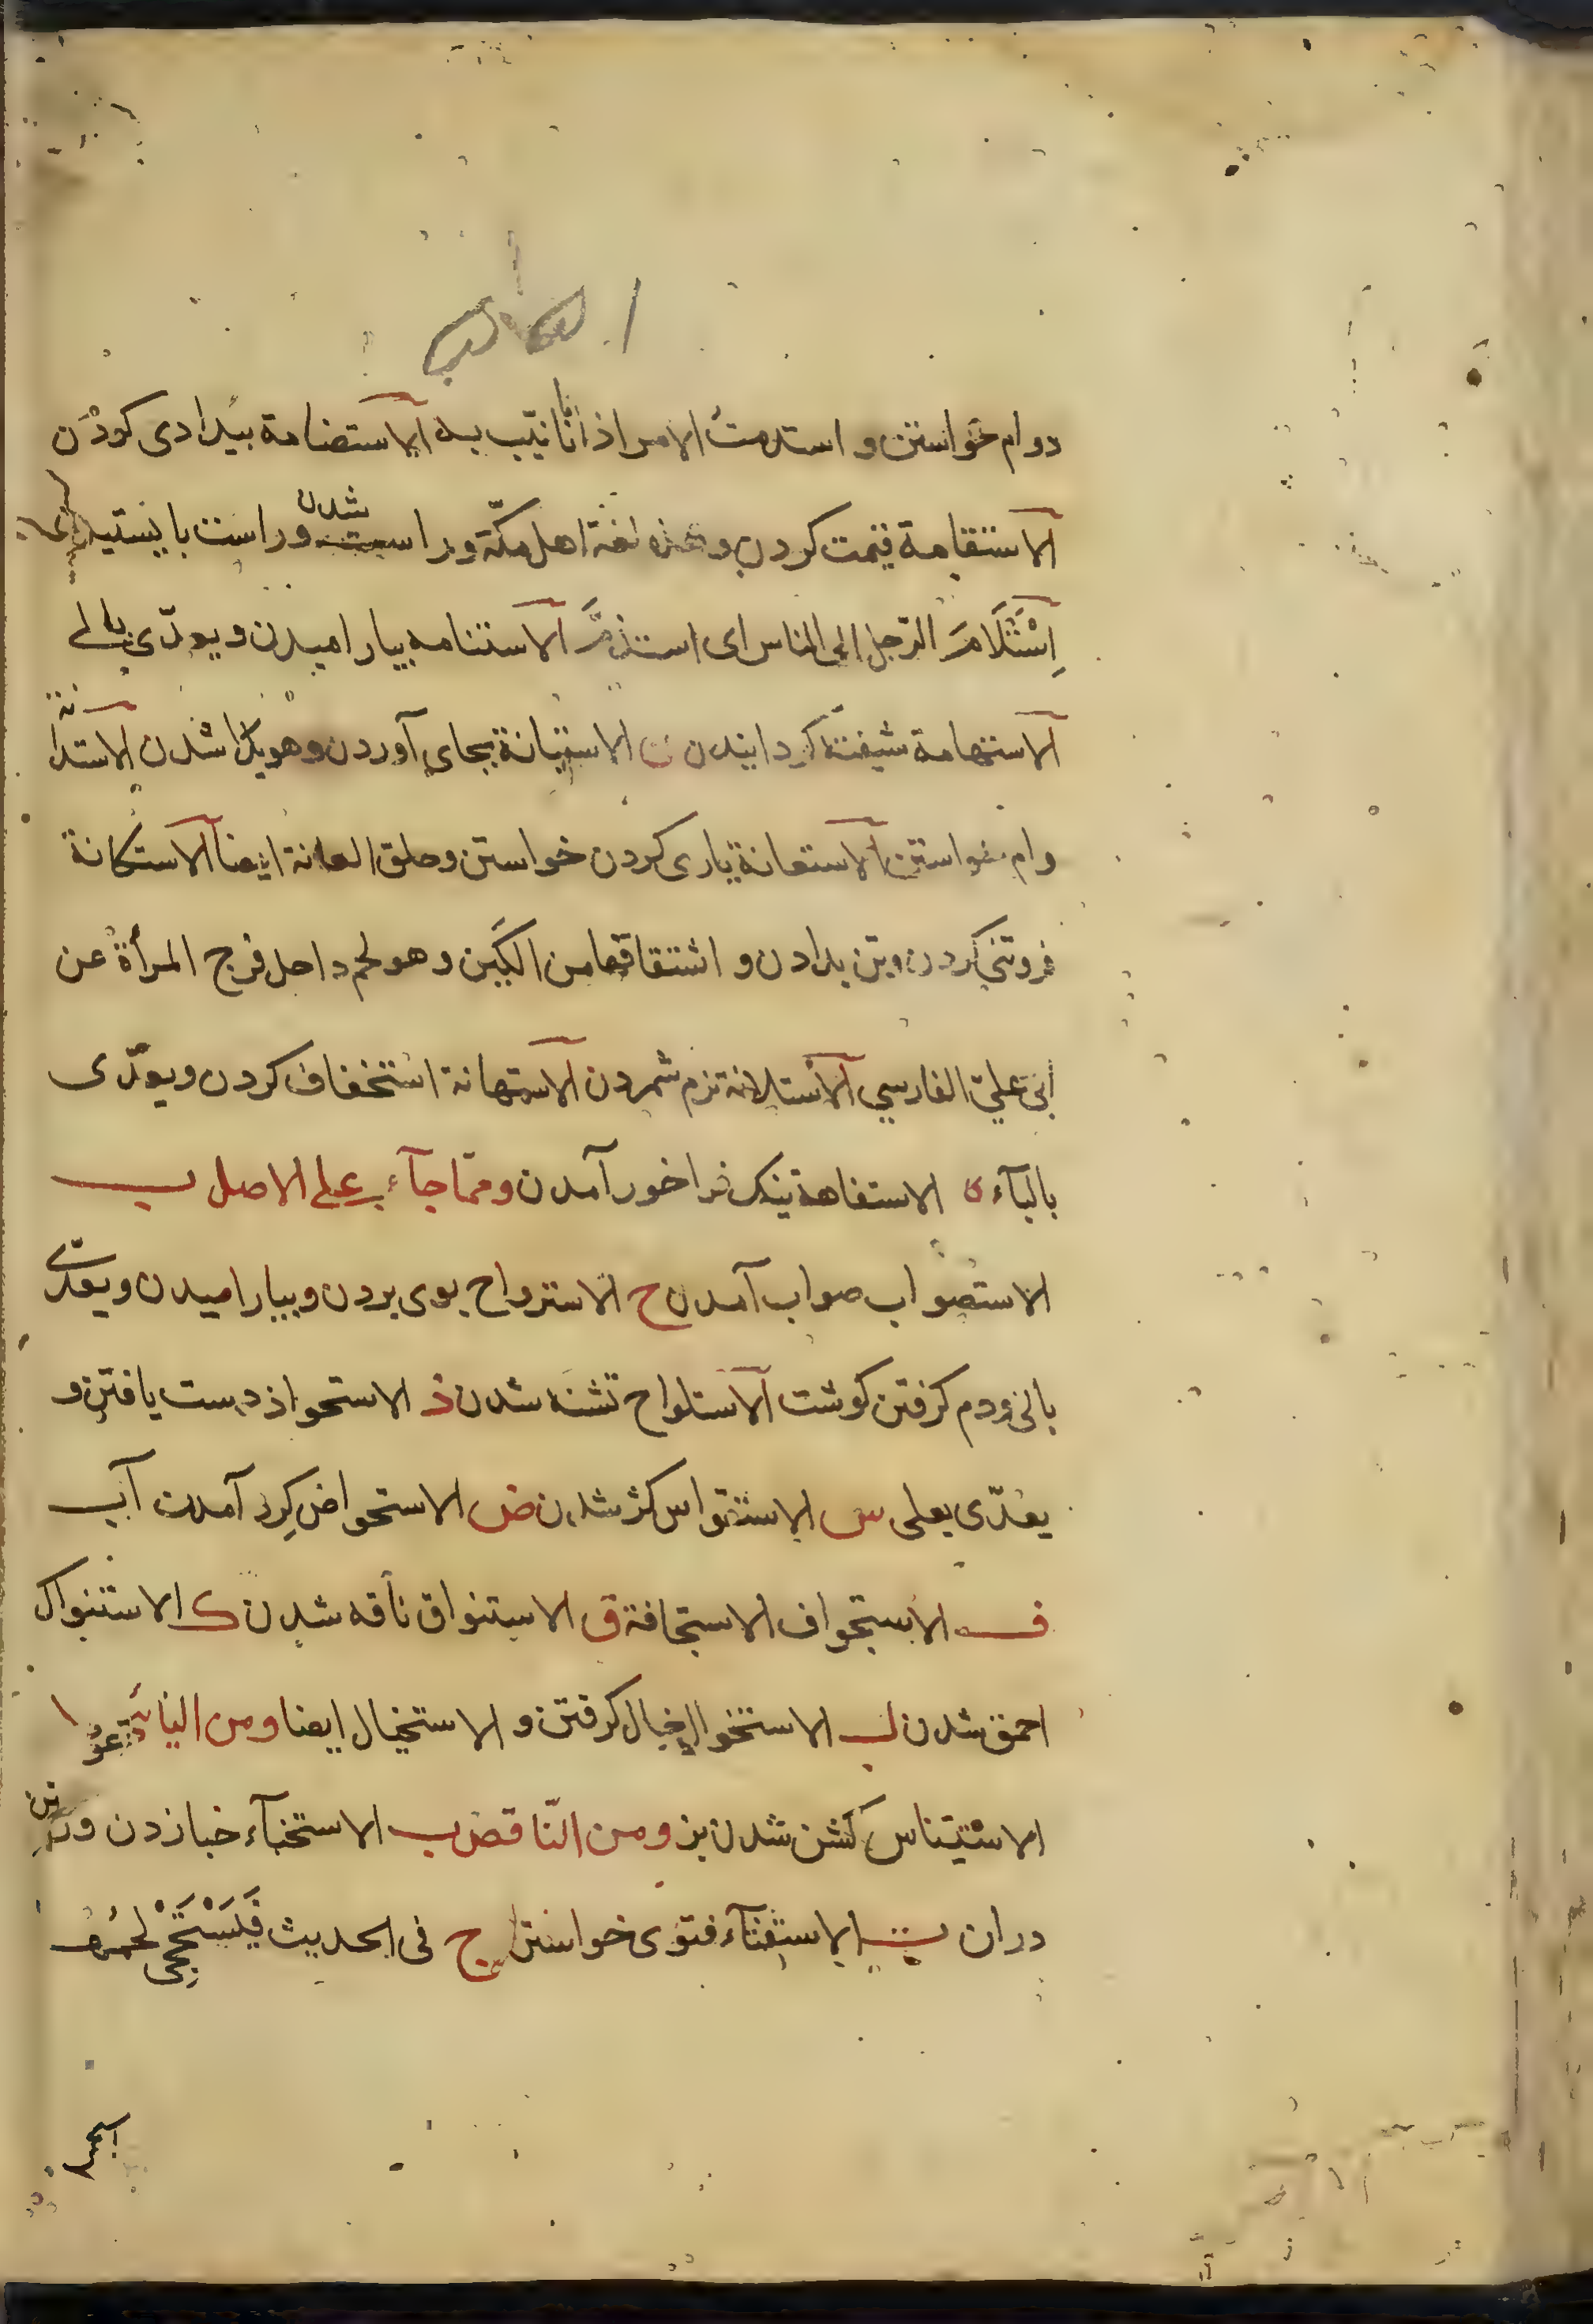 دوام خواستن و استدمتُ الامر اذا تأنیت به الاستضامة بیدادی کودْن
الاستقامة قیمت کردن وهذه لغة اهل مکّة و راست شدن و راست باایستیدن
اِسْتَلَامَ الرّجل الی الناس ای استذمَّ الاستنامه بیارامیدن و یعدّی بالی
الاستهامة شیفته کردانیدن ن الاستبانة بجای آوردن و هویدا شدن الاستدانة
وام خواستن الاستعانة یاری کردن خواستن و حلق العانة ایضا الاستکانة
فروتنی کردن و تن بدادن و اشتقاقها من الکَین وهو لحم داخل فرج المرأة عن
ابی علیّ الفارسی الاستلانة نرم شمردن الاستهانة استخفاف کردن و یعدّی
بالبآء ه الاستفاهة نیک فراخور آمدن و ممّا جآء علی الاصل ب
الاستصواب صواب آمدن ح الاسترواح بوی بردن و بیارامیدن و یعدّی
بالی ودم کرفتن کوشت الاستلواح تشنه شدن ذ الاستحواذ دست یافتن و
یعدّی بعلی س الاستقواس کژ شدن ض الاستحواض کِرد آمدن آب
ف الاستجواف الاستجافة ق الاستنواق ناقه شدن ک الاستنواک
احمق شدن ل الاستخوال خیال کرفتن و الاستخیال ایضا ومن الیائیّ
الاسْتیتاس کشن شدن بز ومن النّاقص ب الاستخبآء خبا زدن و
دران ت الاستفتآء فتوی خواستن ج فی الحدیث فَیَسْتَجْمِی